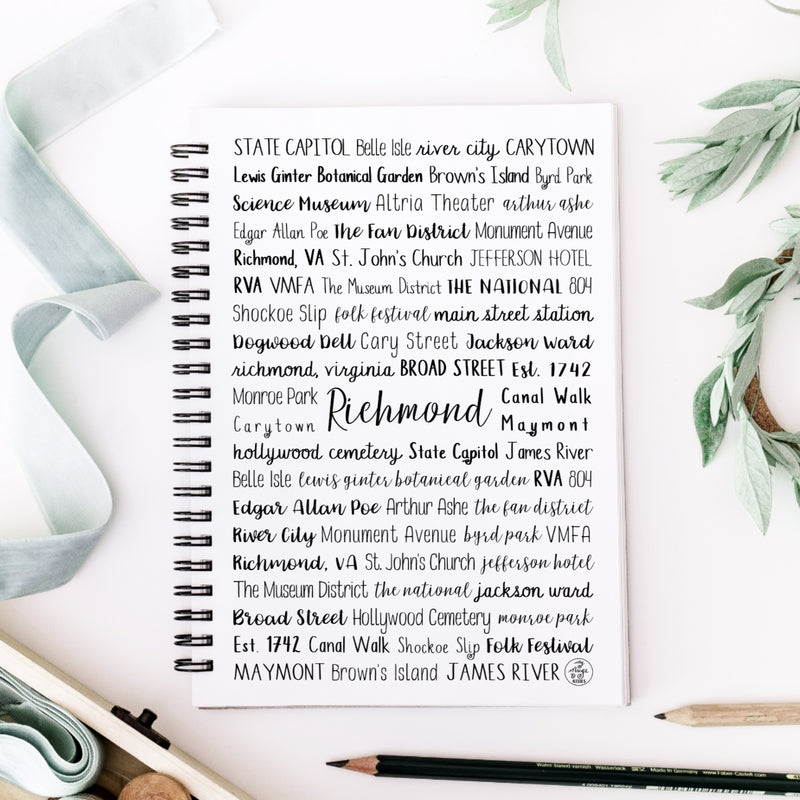 STATE CAPITOL Belle Isle river city CARYTOWN
Lewis Ginter Botanical Garden Brown's Island Byrd Park
Science Museum Altria Theater arthur ashe
Edgar Allan Poe The Fan District Monument Avenue
Richmond, VA St. John's Church JEFFERSON HOTEL
RVA VMFA The Museum District THE NATIONAL 804
Shockoe Slip folk festival main street station
Dogwood Dell Cary Street Jackson Ward
richmond, virginia BROAD STREET Est. 1742
Monroe Park Richmond Canal Walk
Carytown Maymont
hollywood cemetery State Capitol James River
Belle Isle lewis ginter botanical garden RVA 804
Edgar Allan Poe Arthur Ashe the fan district
River City Monument Avenue byrd park VMFA
Richmond, VA St. John's Church jefferson hotel
The Museum District the national jackson ward
Broad Street Hollywood Cemetery monroe park
Est. 1742 Canal Walk Shockoe Slip Folk Festival
MAYMONT Brown's Island JAMES RIVER
Made in Germany www.Faber-Castell.com